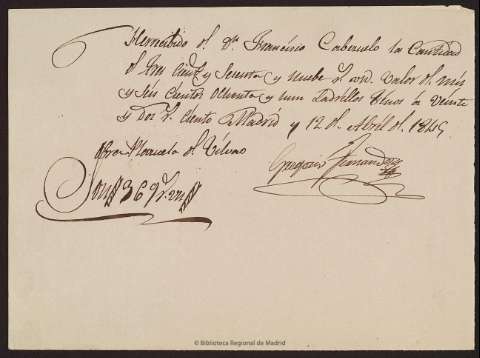 He recibido de Dn. Francisco Cabezuelo la Cantidad
de tres cientos y Sesenta y nuebe rs. von. valor de mis
y seis cientos ochenta y un Ladrillos finos à veinte
y Dos rs. ciento Madrid y 12 de Abril de 1845
Obra Plazuela del
Son 369 rs. von
Gregorio Fernandez
© Biblioteca Regional de Madrid